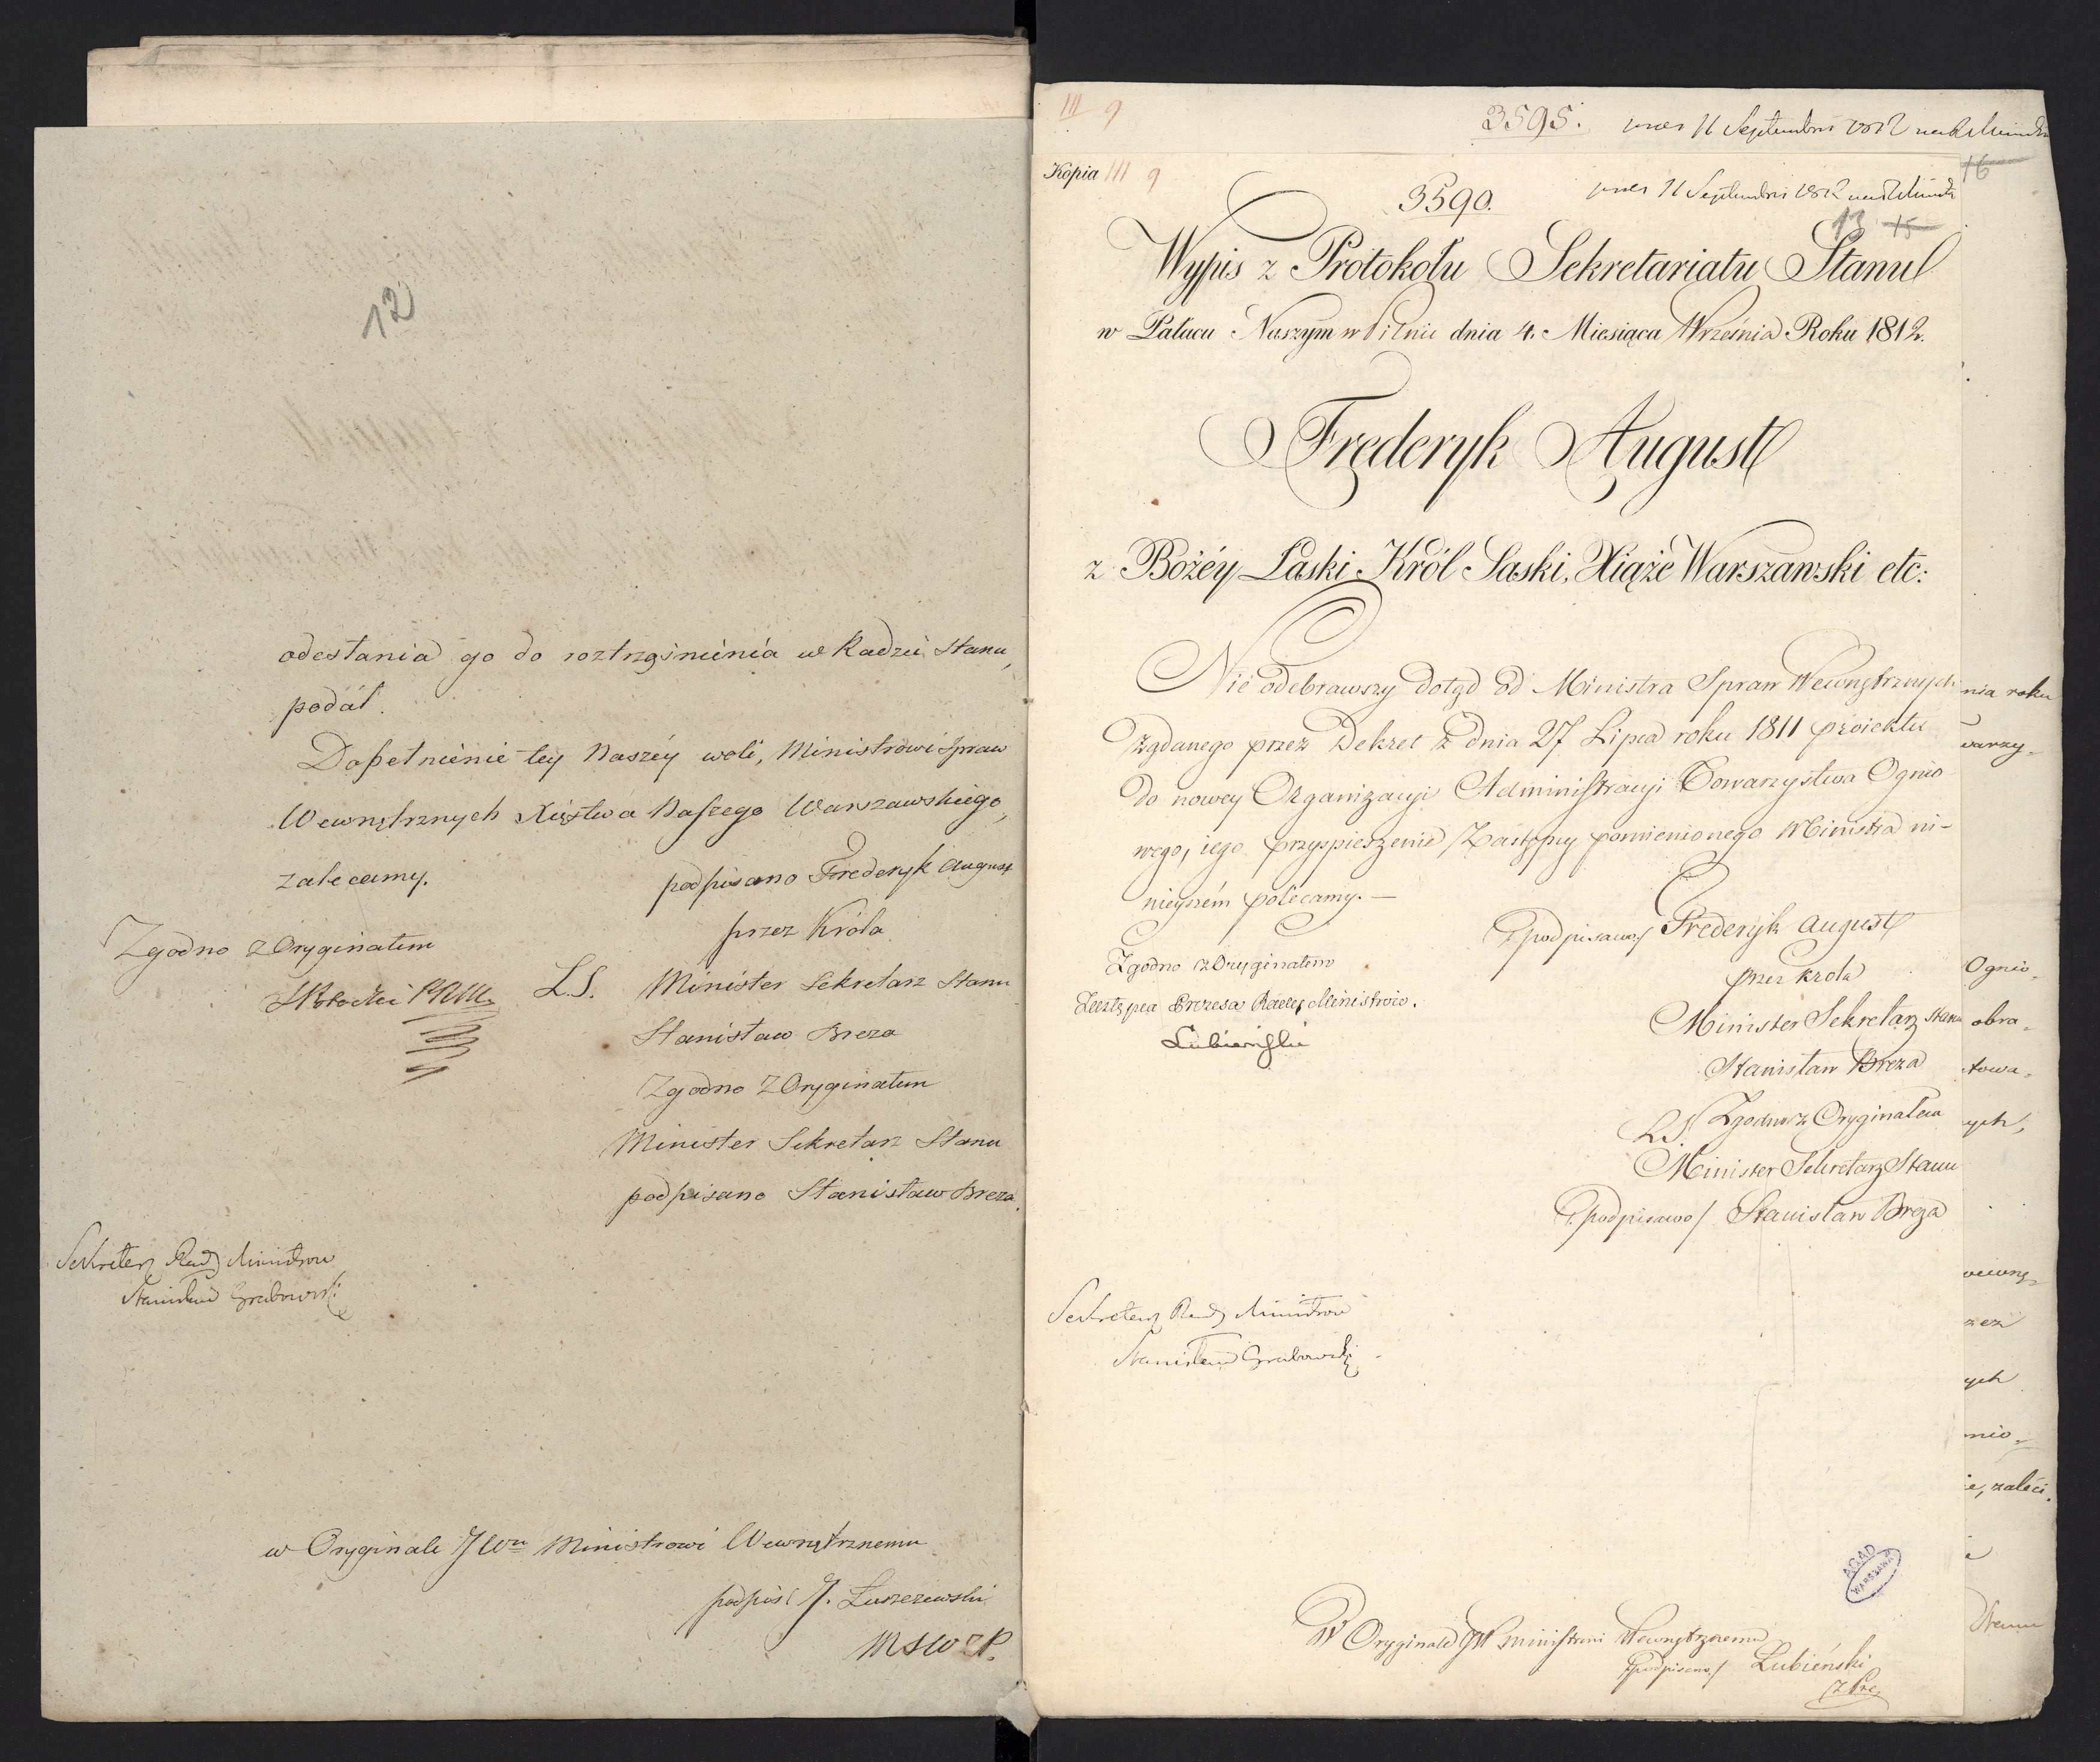 12
odesłania go do roztrząśnienia w Radzie Stanu,
podał.
Dopełnienie tey Naszéy woli, Ministrowi Spraw
Wewnętrznych Xięstwa Naszego Warszawskiego,
zalecamy.
podpisano Frederyk August
przez Króla
Zgodno z Oryginałem
L.S. Minister Sekretarz Stanu
Stanisław Breza
Zgodno z Oryginałem
Minister Sekretarz Stanu
podpisano Stanisław Breza.
Sekretarz Rady Ministrow
Stanisław Grabowski
w Oryginale JWu Ministrowi Wewnętrznemu
podpis: J. Łuszczewski
MSW i P.
III 9
3595. 11 Septembris 1812
16
Kopia III 9
3590. 11 Septembris 1812
13 15
Wypis z Protokołu Sekretariatu Stanu
w Pałacu Naszym dnia 4. Miesiąca Września Roku 1812.
Frederyk August
z Bożéy Łaski Król Saski, Xiąże Warszawski etc:
Nie odebrawszy dotąd od Ministra Spraw Wewnętrznych
żądanego przez Dekret z dnia 27 Lipca roku 1811 proiektu
do nowey Organizacyi Administracyi Towarzystwa Ognio
wego, iego przyspieszenie Zastępcy pomienionego Ministra ni-
nieyszém polecamy. —
/podpisano/ Frederyk August
przez Krola
Minister Sekretarz Stanu
Stanisław Breza
L.S. Zgodno z Oryginałem
Minister Sekretarz Stanu
/podpisano/ Stanisław Breza
Zgodno z Oryginałem
Zastępca Prezesa Rady Ministrów.
Łubieński
Sekretarz Rady Ministrow
Stanisław Grabowski
W Oryginale JW Ministrowi Wewnętrznemu
/podpisano/ Łubieński
AGAD
WARSZAWA
nia roku
warzy-
Ognio-
obra-
towa-
ych,
wewnę-
zez
ych
nio-
ie, zaleci.
Stanu